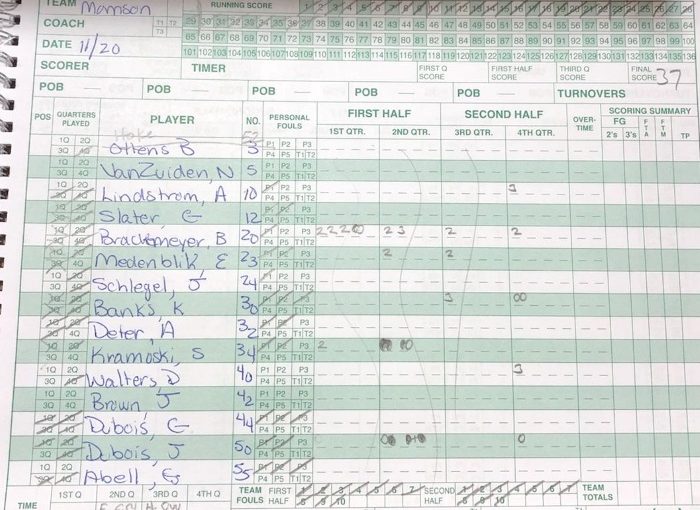 TEAM Momson RUNNING SCORE 1 2 3 4 5 6 7 8 9 10 11 12 13 14 15 16 17 18 19 20 21 22 23 24 25 26 27 28
COACH T1 T2 T3 29 30 31 32 33 34 35 36 37 38 39 40 41 42 43 44 45 46 47 48 49 50 51 52 53 54 55 56 57 58 59 60 61 62 63 64
DATE 11/20 65 66 67 68 69 70 71 72 73 74 75 76 77 78 79 80 81 82 83 84 85 86 87 88 89 90 91 92 93 94 95 96 97 98 99 100
101 102 103 104 105 106 107 108 109 110 111 112 113 114 115 116 117 118 119 120 121 122 123 124 125 126 127 128 129 130 131 132 133 134 135 136
SCORER TIMER FIRST Q SCORE FIRST HALF SCORE THIRD Q SCORE FINAL SCORE 37
POB POB POB POB POB TURNOVERS
POS QUARTERS PLAYED PLAYER NO. PERSONAL FOULS FIRST HALF SECOND HALF OVER-TIME SCORING SUMMARY
1ST QTR. 2ND QTR. 3RD QTR. 4TH QTR. FG 2's 3's FTA FTM TP
Hoke 52
1Q 2Q 3Q 4Q Ottens B 3 P1 P2 P3 P4 P5 T1 T2
1Q 2Q 3Q 4Q VanZuiden, N 5 P1 P2 P3 P4 P5 T1 T2
1Q 2Q 3Q 4Q Lindstrom, A 10 P1 P2 P3 P4 P5 T1 T2 3
1Q 2Q 3Q 4Q Slater, G 12 P1 P2 P3 P4 P5 T1 T2
1Q 2Q 3Q 4Q Brackemeyer, B 20 P1 P2 P3 P4 P5 T1 T2 2 2 2 0 2 3 2 2
1Q 2Q 3Q 4Q Medenblik, E 23 P1 P2 P3 P4 P5 T1 T2 2 2
1Q 2Q 3Q 4Q Schlegel, J 24 P1 P2 P3 P4 P5 T1 T2
1Q 2Q 3Q 4Q Banks, K 30 P1 P2 P3 P4 P5 T1 T2 3 00
1Q 2Q 3Q 4Q Deter, A 32 P1 P2 P3 P4 P5 T1 T2
1Q 2Q 3Q 4Q Kramoski, S 34 P1 P2 P3 P4 P5 T1 T2 2
1Q 2Q 3Q 4Q Walters, D 40 P1 P2 P3 P4 P5 T1 T2 3
1Q 2Q 3Q 4Q Brown, J 42 P1 P2 P3 P4 P5 T1 T2
1Q 2Q 3Q 4Q Dubois, G 44 P1 P2 P3 P4 P5 T1 T2
1Q 2Q 3Q 4Q Dubois, J 50 P1 P2 P3 P4 P5 T1 T2 0
1Q 2Q 3Q 4Q Abell, G 55 P1 P2 P3 P4 P5 T1 T2
TIME 1ST Q 2ND Q 3RD Q 4TH Q TEAM FOULS FIRST HALF 1 2 3 4 5 6 7 8 9 10 SECOND HALF 1 2 3 4 5 6 7 8 9 10 TEAM TOTALS